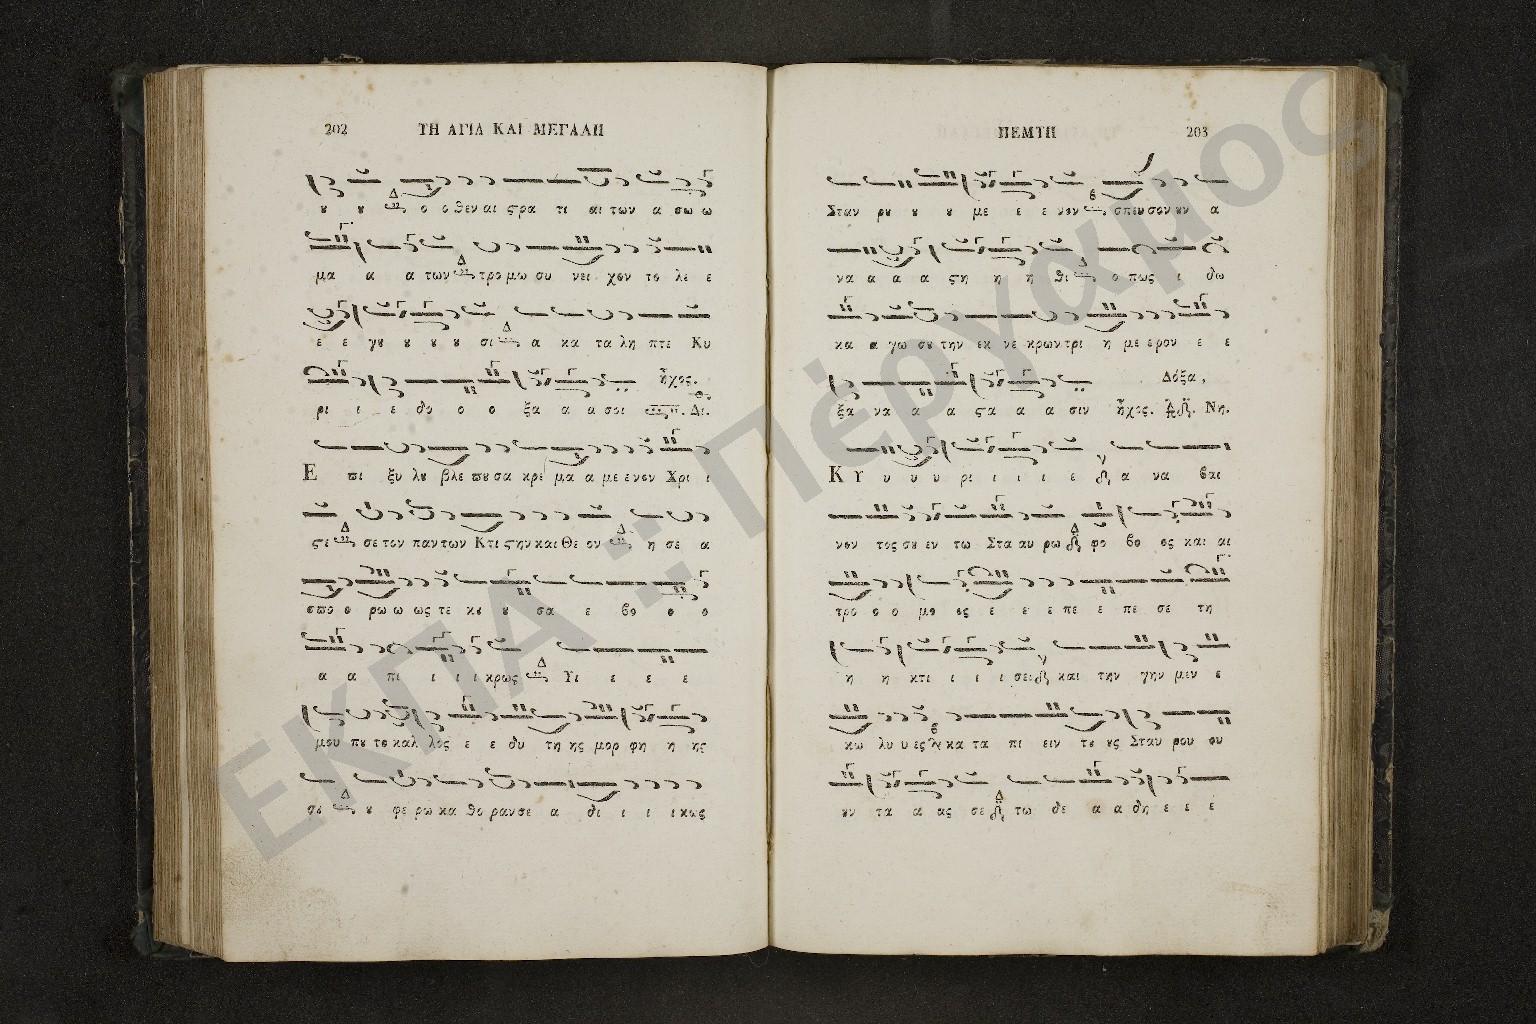 202 ΤΗ ΑΓΙΑ ΚΑΙ ΜΕΓΑΛΗ
ȣ ȣ Δ ο ο θεν αι ϛρα τι αι των α σω ω
μα α α των Δ τρο μω συ νει χον το λε ε
ε ε γȣ ȣ ȣ ȣ σι Δ α κα τα λη πτε Κυ
ρι ι ε δο ο ο ξα α α σοι ἦχος. Δι.
Ε πι ξυ λȣ βλε πȣ σα κρε μα α με ε νον Χρι ι
ϛε Δ σε τον παν των Κτι ϛην και Θε ον Δ η σε α
σπο ο ρω ω ως τε κȣ ȣ σα ε βο ο ο
α α πι ι ι ι κρως Δ Υι ε ε ε
μου πȣ το καλ λος ε ε δυ τη ης μορ φη η ης
σȣ Δ ȣ φε ρω κα θο ραν σε α δι ι ι ι κως
ΠΕΜΤΗ 203
Σταυ ρȣ ȣ ȣ με ε ε νον θ σπευ σον ȣν α
να α α α ϛη η η θι Δ ο πως ι δω
κα α γω σȣ την εκ νε κρων τρι η με ερον ε ε
ξα να α α ϛα α α σιν ἦχος. Δόξα,
Νη.
Κ Υ υ υ υ ρι ι ι ι ε α να βαι
νον τος σȣ εν τω Στα αυ ρω Δ φο βο ος και αι
τρο ο ο μο ος ε ε ε πε ε πε σε τη
η η κτι ι ι ι σει και την γην μεν ε
κω λυ υ ες κα τα πι ειν τȣ ȣς Σταυ ρου ου
ȣν τα α ας σε Δ τω δε α α δη ε ε ε
ΕΚΠΑ :: Πέργαμος